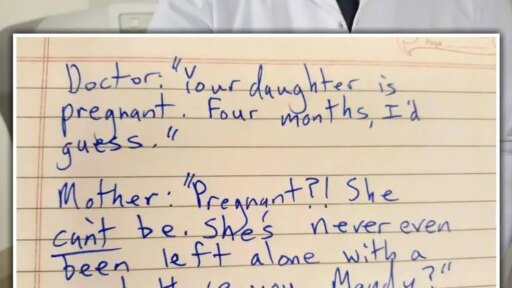 Doctor: "Your daughter is
pregnant. Four months, I'd
guess."
Mother: "Pregnant?! She
can't be. She's never even
been left alone with a
you, Mandy?"